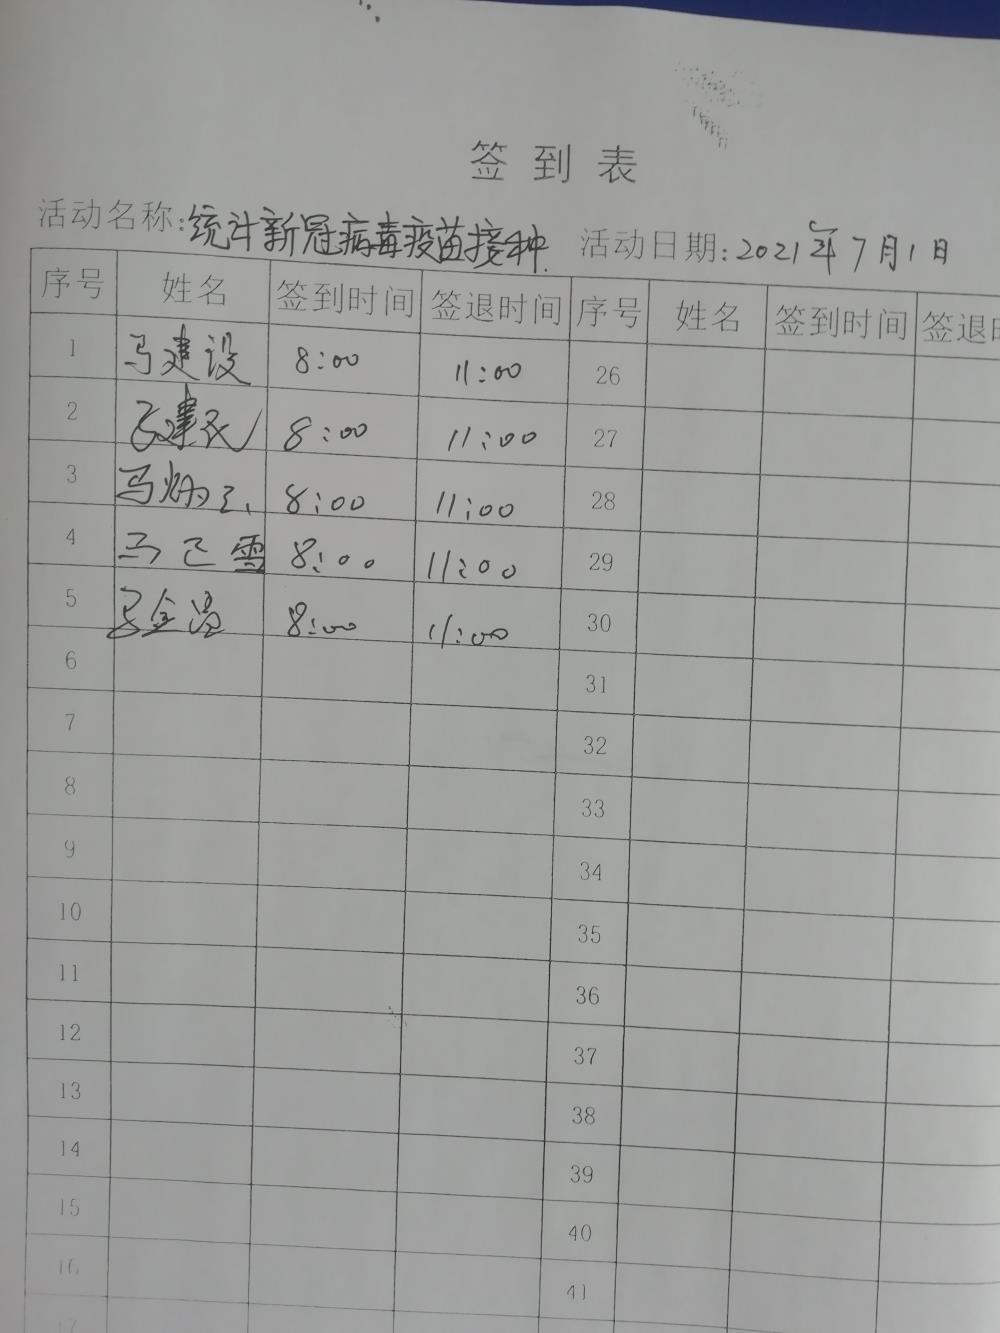 签到表
活动名称:统计新冠病毒疫苗接种. 活动日期:2021年7月1日
序号 姓名 签到时间 签退时间 序号 姓名 签到时间 签退时
1 马建设 8:00 11:00 26
2 马建民 8:00 11:00 27
3 8:00 11:00 28
4 8:00 11:00 29
5 8:00 11:00 30
6 31
7 32
8 33
9 34
10 35
11 36
12 37
13 38
14 39
15 40
16 41
17